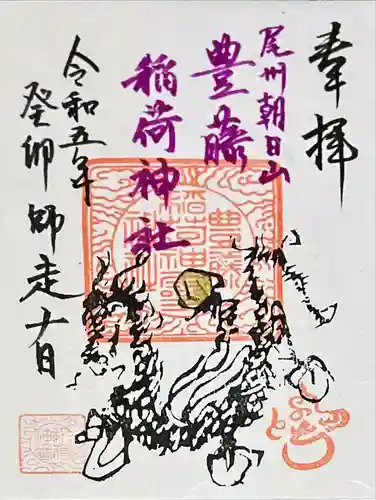 奉拝
尾州朝日山
豊藤
稲荷神社
令和五年
癸卯師走十日